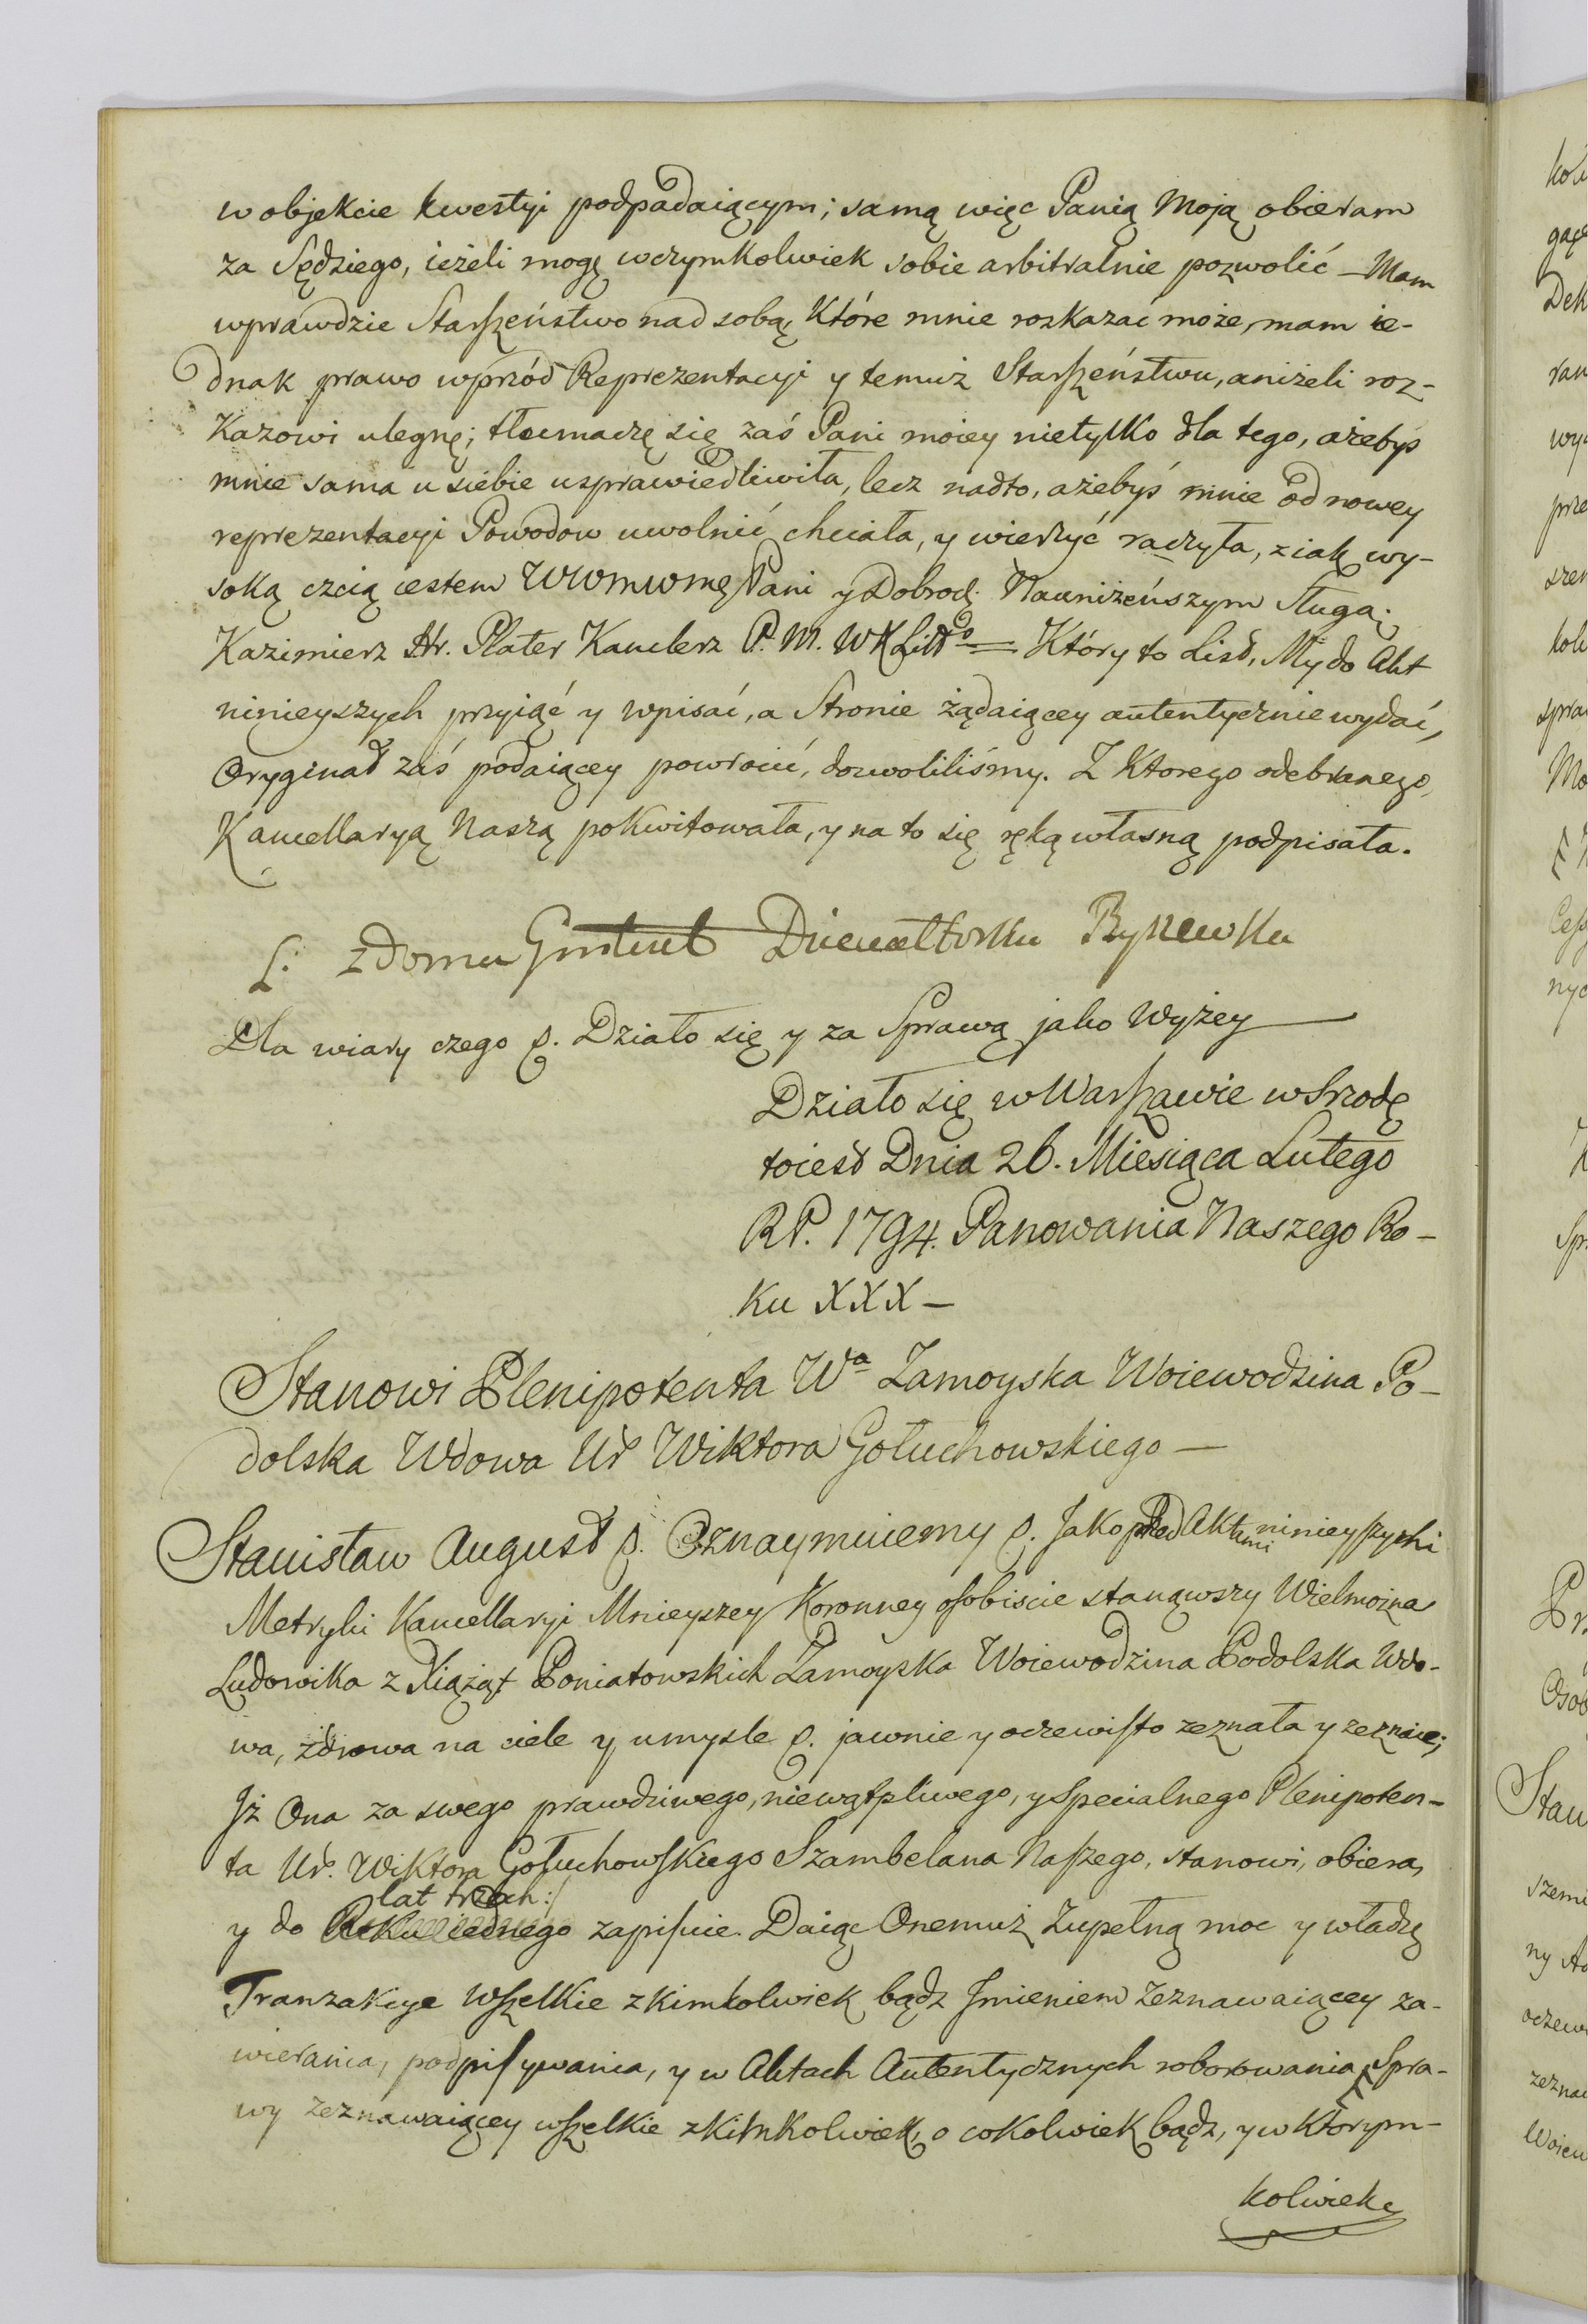 w objekcie kwestyi podpadaiącym; samą więc Panią Moją obieram
za Sędziego, ieżeli mogę wczymkolwiek sobie arbitralnie pozwolić — Mam
wprawdzie Starszeństwo nad sobą, Które mnie rozkazać może, mam ie-
dnak prawo wprzód Reprezentacyi y temuż Starszeństwu, aniżeli roz-
Kazowi ulegnę; tłomaczę się zaś Pani moiey nietylko dla tego, ażebyś
mnie sama u siebie usprawiedliwiła, lecz nadto, ażebyś mnie od nowey
reprezentacyi Powodow uwolnić chciała, y wierzyć raczyła, z iak wy-
soką czcią iestem WWMWMę Pani y Dobrodz. Nauniżeńszym Sługą.
Kazimierz Hr. Plater Kanclerz P. M. W X Litt⁰ = Który to List, My do Akt
ninieyszych przyiąć y wpisać, a Stronie żądaiącey autentycznie wydać,
Oryginał zaś podaiącey powrócić, dozwoliliśmy. Z Ktorego odebranego,
Kancellaryą Naszą pokwitowała, y na to się ręką własną podpisała.
z domu
Dla wiary czego p. Działo się y za Sprawą jako Wyżey
Działo się w Warszawie w Srzodę
toiest Dnia 26. Miesiąca Lutego
RP. 1794. Panowania Naszego Ro-
ku XXX —
Stanowi Plenipotenta Wª Zamoyska Woiewodzina Po-
dolska Wdowa Ur Wiktora Gołuchowskiego —
Stanisław August p. Oznaymuiemy p. Jako przed Aktami ninieyszymi
Metryki Kancellaryi Mnieyszey Koronney osobiscie stanąwszy Wielmożna
Ludowika z Xiążąt Poniatowskich Zamoyska Woiewodzina Podolska Wdo-
wa, zdrowa na ciele y umysle p. jawnie y oczewisto zeznała y zeznaie;
Jż Ona za swego prawdziwego, niewątpliwego, y specialnego Plenipoten-
ta Ur. Wiktora Gołuchowskiego Szambelana Naszego, stanowi, obiera,
lat trzech:
y do Roku iednego zapisuie. Daiąc Onemuż Zupełną moc y władzę
Tranzakcye wszelkie z kimkolwiek bądz Jmieniem Zeznawaiącey za-
wierania, podpisywania, y w Aktach Autentycznych roborowania, Spra-
wy Zeznawaiącey wszelkie z kimkolwiek, o cokolwiek bądz, y w Ktorym-
kolwiek